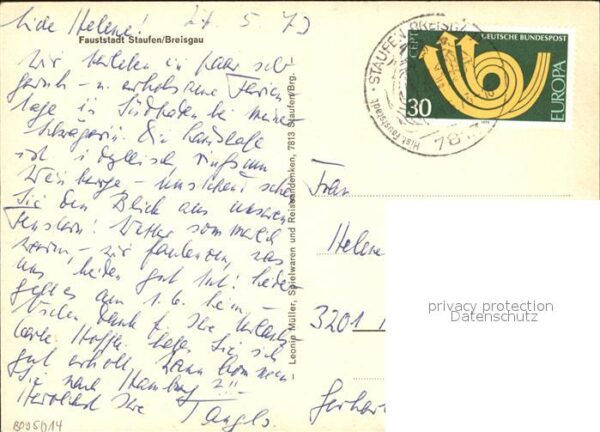 Liebe Helene! 27.5.73
Fauststadt Staufen/Breisgau
Wir verleben ein paar sehr
geruh- u. erholsame Ferien-
tage in Südbaden bei meiner
Schwägerin. Die Landschaft
ist idyllisch rings um
Weinberge - 
Sie den Blick aus unseren
Fenstern! Wetter sommerlich
warm, - wir faulenzen, was
uns beiden gut tut! Leider
geht es am 1.6. heim, -
Vielen Dank f. Ihre Urlaubs-
karte. Hoffe, haben Sie sich
gut erholt. Wann kommen
Sie nach Hamburg?!!
Herzlichst Ihre
Leonie Müller, Spielwaren und Reiseandenken, 7813 Staufen/Brg.
STAUFEN BREISGAU
Hist. Fauststadt
7813
CEPT
DEUTSCHE BUNDESPOST
EUROPA
30
Frau
Helene
3201
Gerhar
privacy protection
Datenschutz
BO95014